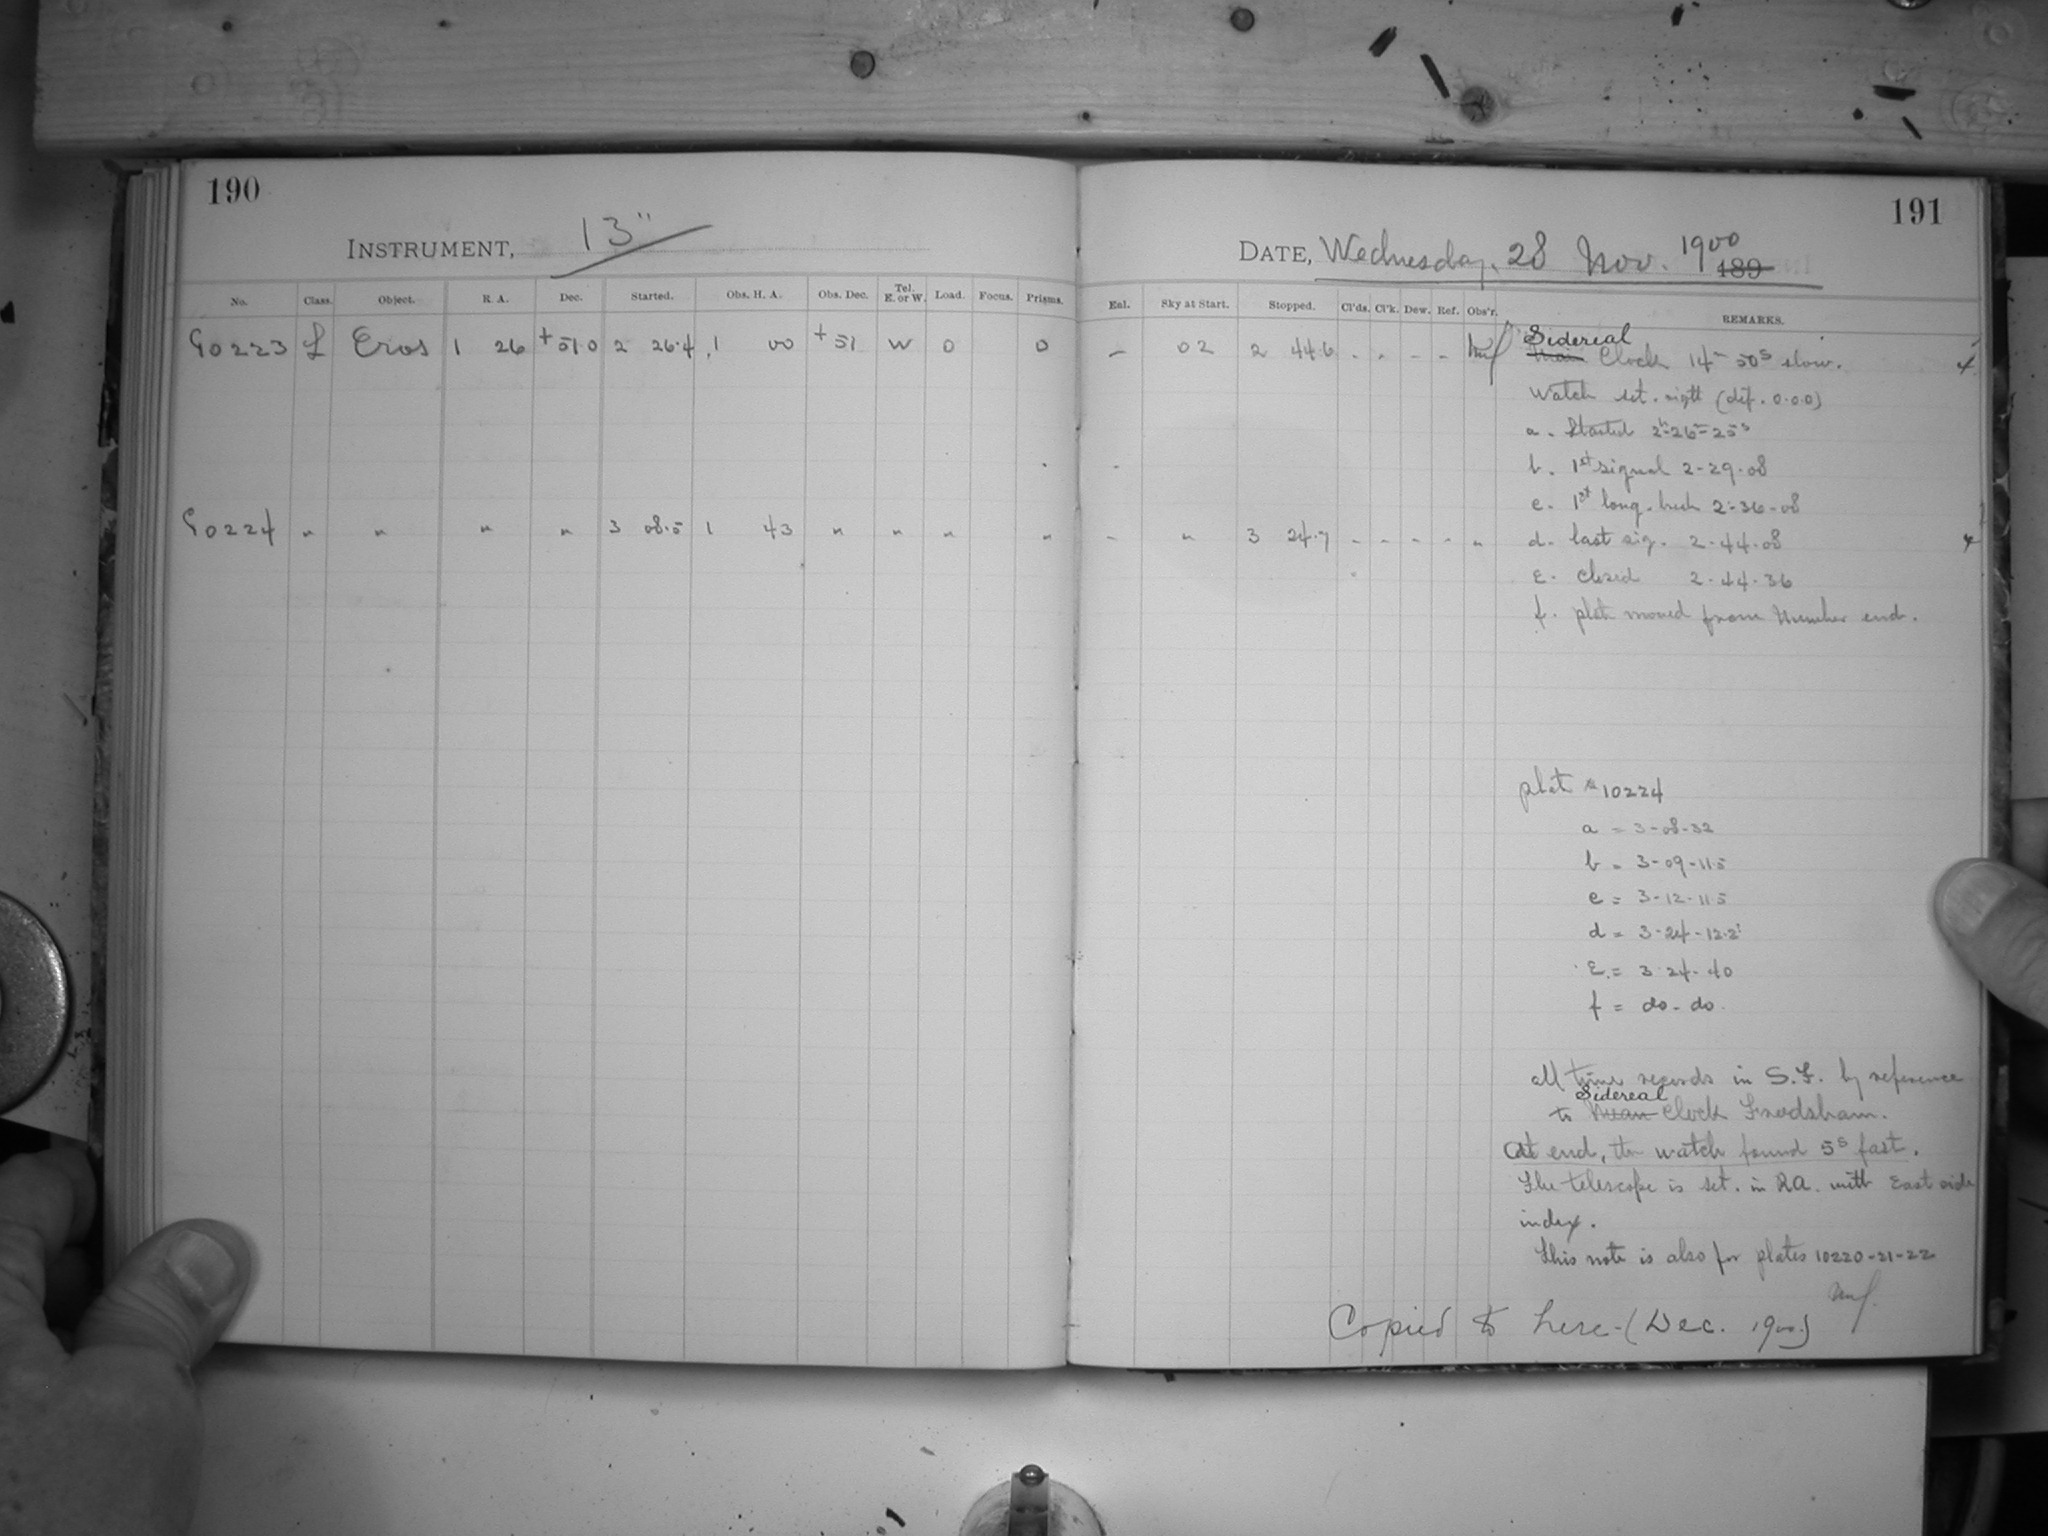 190
INSTRUMENT, 13"
No. Class. Object. R. A. Dec. Started. Obs. H. A. Obs. Dec. Tel. E. or W. Load. Focus. Prisms.
G 0223 L Eros 1 26 +51 0 2 26.4 1 00 +51 W 0 0
G 0224 " " " " 3 08.5 1 43 " " " "
191
DATE, Wednesday, 28 Nov. 1900 189
Enl. Sky at Start. Stopped. Cl'ds. Cl'k. Dew. Ref. Obs'r. REMARKS.
Sidereal
- 02 2 44.6 - - - - Mean Clock 14m 50s slow.
Watch set. right (dif. 0.0.0)
a. Started 2h-26m-25s
b. 1st signal 2-29-08
c. 1st long. break 2-36-08
- " 3 24.7 - - - - " d. last sig. 2-44-08
E. closed 2-44-36
f. plate moved from Number end.
plate # 10224
a = 3-08-32
b = 3-09-11.5
c = 3-12-11.5
d = 3-24-12.2
E. = 3-24-40
f = do - do.
all time records in S.T. by reference
Sidereal
to Mean Clock Frodsham.
At end, the watch found 5s fast.
The telescope is set. in RA. with East side
index.
This note is also for plates 10220-21-22
Copied to here - (Dec. 1900)